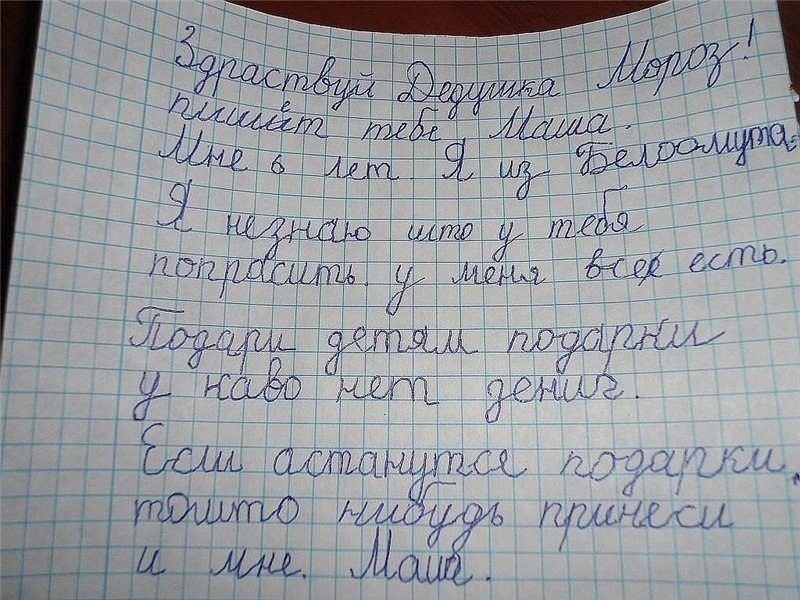 Здраствуй Дедушка Мороз!
пишит тебе Маша.
Мне 6 лет. Я из Белоомута.
Я незнаю што у тебя
попрасить. у меня все есть.
Подари детям подарки
у каво нет дениг.
Если астанутся подарки,
тошто нибудь принеси
и мне. Маша.